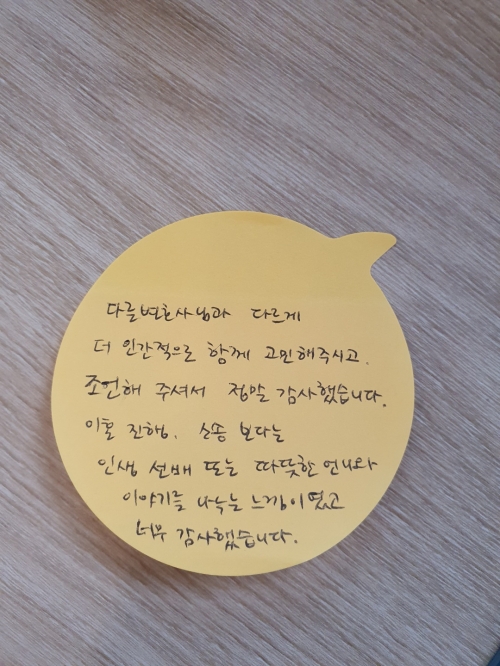 다를변호사님과 다르게
더 인간적으로 함께 고민해주시고.
조언해 주셔서 정말 감사했습니다.
이혼 진행. 소송 보다는
인생 선배 또는 따뜻한 언니와
이야기를 나누는 느낌이였고
너무 감사했습니다.